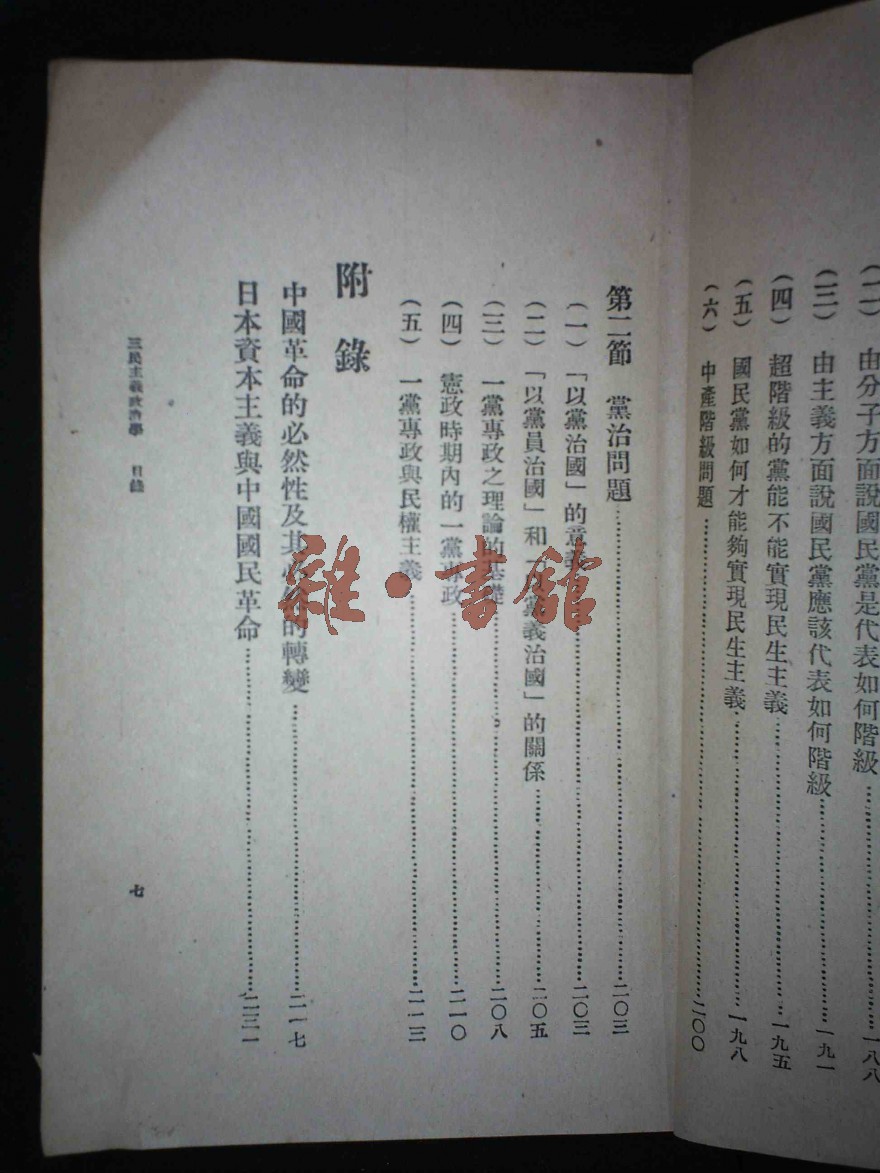 (二) 由分子方面說國民黨是代表如何階級……一八八
(三) 由主義方面說國民黨應該代表如何階級……一九一
(四) 超階級的黨能不能實現民生主義……一九五
(五) 國民黨如何才能夠實現民生主義……一九八
(六) 中產階級問題……二〇〇
第二節 黨治問題……二〇三
(一) 「以黨治國」的意義……二〇三
(二) 「以黨員治國」和「以黨義治國」的關係……二〇五
(三) 一黨專政之理論的基礎……二〇八
(四) 憲政時期內的一黨專政……二一〇
(五) 一黨專政與民權主義……二一三
附錄
中國革命的必然性及其必然的轉變……二一七
日本資本主義與中國國民革命……二三一
三民主義政治學 目錄
七
雜·書館